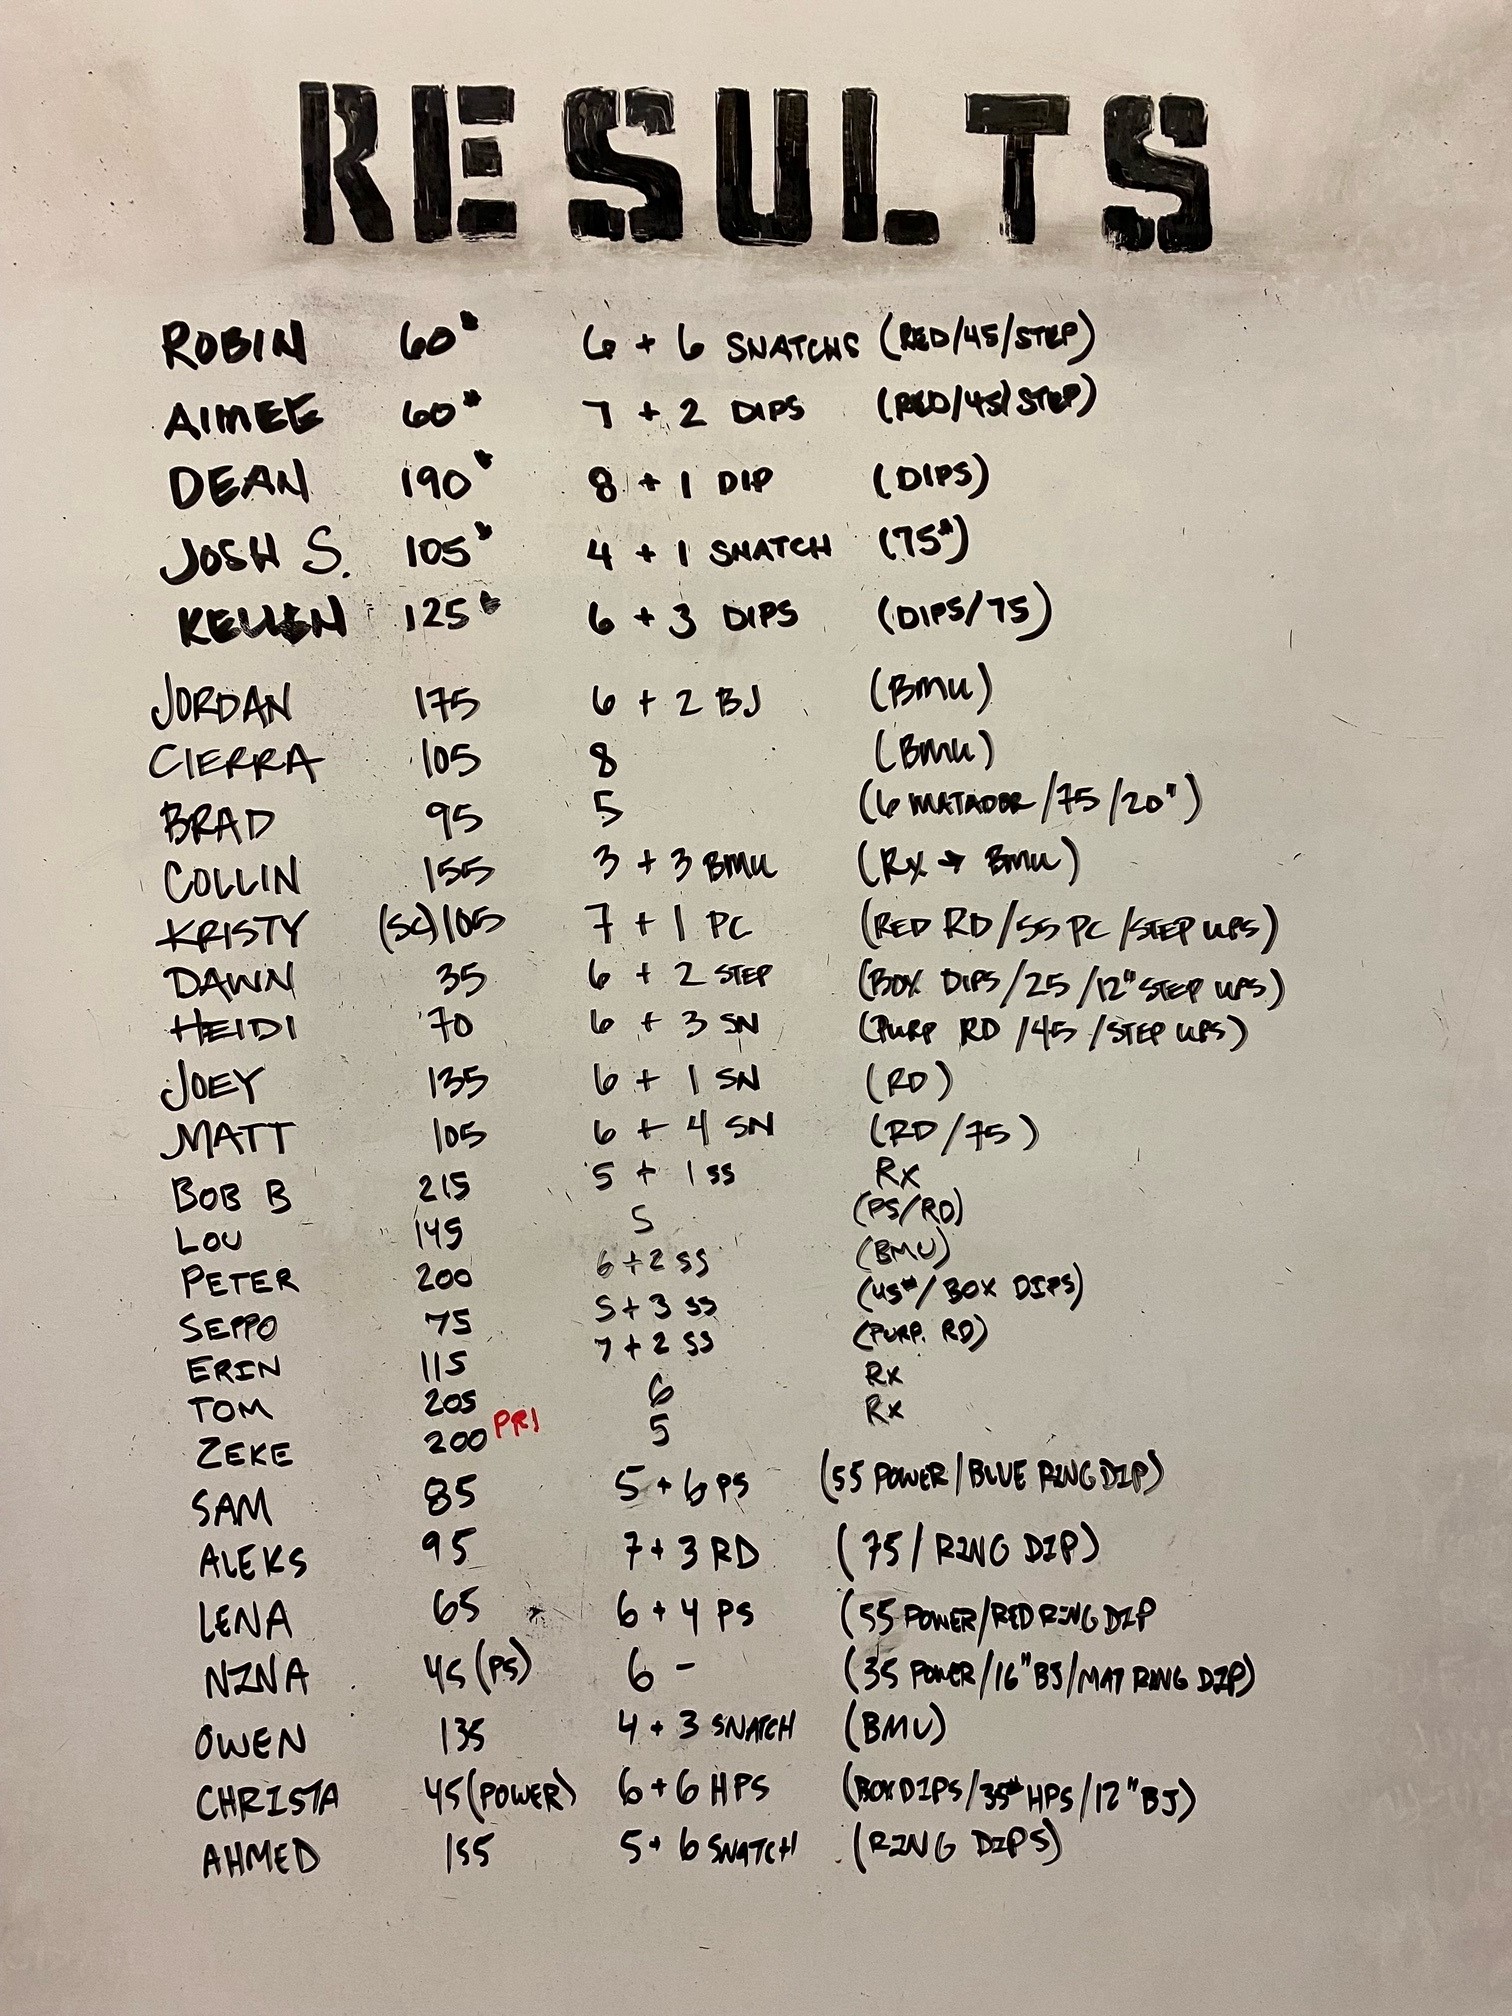 RESULTS
ROBIN 60# 6 + 6 SNATCHS (RED/45/STEP)
AIMEE 60# 7 + 2 DIPS (RED/45/STEP)
DEAN 190# 8 + 1 DIP (DIPS)
JOSH S. 105# 4 + 1 SNATCH (75#)
KELLEN 125# 6 + 3 DIPS (DIPS/75)
JORDAN 175 6 + 2 BJ (BMU)
CIERRA 105 8 (BMU)
BRAD 95 5 (6 MATADOR/75/20")
COLLIN 155 3 + 3 BMU (Rx → BMU)
KRISTY (SC)105 7 + 1 PC (RED RD/55 PC/STEP UPS)
DAWN 35 6 + 2 STEP (BOX DIPS/25/12" STEP UPS)
HEIDI 70 6 + 3 SN (PURP RD/45/STEP UPS)
JOEY 135 6 + 1 SN (RD)
MATT 105 6 + 4 SN (RD/75)
BOB B 215 5 + 1 SS Rx
LOU 145 5 (PS/RD)
PETER 200 6+2 SS (BMU)
SEPPO 75 5+3 SS (45#/BOX DIPS)
ERIN 115 7+2 SS (PURP. RD)
TOM 205 6 Rx
ZEKE 200 PR! 5 Rx
SAM 85 5+6 PS (55 POWER/BLUE RING DIP)
ALEKS 95 7+3 RD (75/RING DIP)
LENA 65 6+4 PS (55 POWER/RED RING DIP
NINA 45(PS) 6 - (35 POWER/16" BJ/MAT RING DIP)
OWEN 135 4+3 SNATCH (BMU)
CHRISTA 45(POWER) 6+6 HPS (BOX DIPS/35# HPS/12" BJ)
AHMED 155 5+6 SNATCH (RING DIPS)